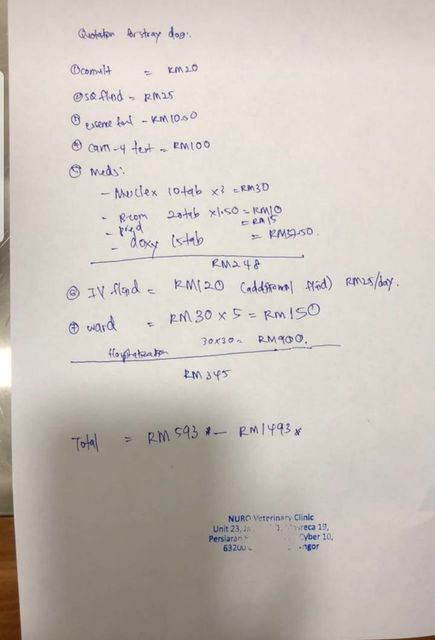 Quotation for stray dog:.
① consult = RM20
② SQ fluid = RM25
③ - RM10.50
④ Cani-4 test = RM100
⑤ Meds:
- Muclex 10tab x3 = RM30
- B-com 20tab x1.50 = RM10
- pred = RM15
- doxy 15tab = RM37.50
RM248
⑥ IV fluid = RM120 (additional fluid) RM25/day.
⑦ ward = RM30 x 5 = RM150
Hospitalization 30x30= RM900.
RM345
Total = RM593 * - RM1493 *
NURO Veterinary Clinic
Unit 23, 19,
Persiaran Cyber 10,